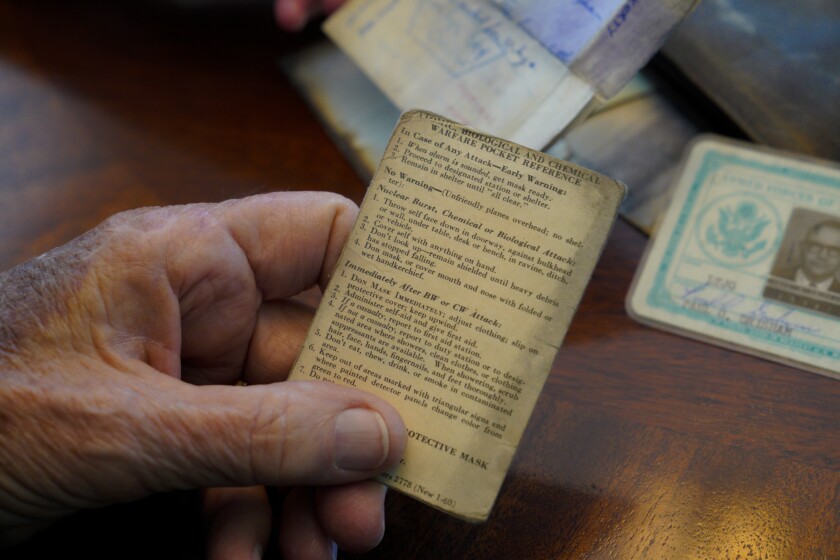 BIOLOGICAL AND CHEMICAL
WARFARE POCKET REFERENCE
In Case of Any Attack—Early Warning:
1. When alarm is sounded, get mask ready.
2. Proceed to designated station or shelter.
3. Remain in shelter until "all clear."
No Warning—(Unfriendly planes overhead; no shel-
ter):
Nuclear Burst, Chemical or Biological Attack:
1. Throw self face down in doorway, against bulkhead
or wall, under table, desk or bench, in ravine, ditch,
or vehicle.
2. Cover self with anything on hand.
3. Don't look up—remain shielded until heavy debris
has stopped falling.
4. Don mask, or cover mouth and nose with folded or
wet handkerchief.
Immediately After BW or CW Attack:
1. DON MASK IMMEDIATELY; adjust clothing; slip on
protective cover; keep upwind.
2. Administer self-aid and give first aid.
3. If a casualty, report to first aid station.
4. If not a casualty, report to duty station or to desig-
nated area where showers, clean clothes, or clothing
impregnants are available. When showering, scrub
hair, face, hands, fingernails, and feet thoroughly.
5. Don't eat, chew, drink, or smoke in contaminated
area.
6. Keep out of areas marked with triangular signs and
where painted detector panels change color from
green to red.
7. Do
ROTECTIVE MASK
2778 (New 1-60)
UNITED STATES OF